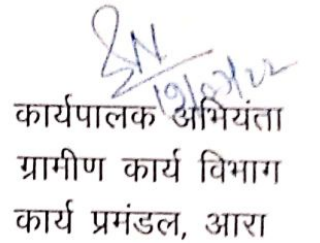 कार्यपालक अभियंता
ग्रामीण कार्य विभाग
कार्य प्रमंडल, आरा